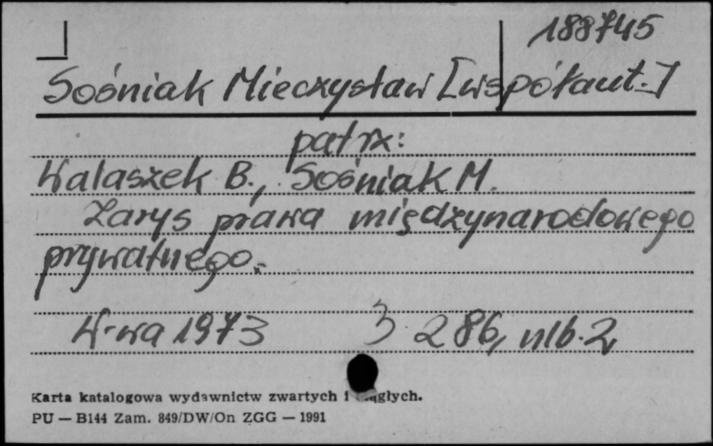 188745
Sośniak Mieczysław [współaut.]
patrz:
Walaszek B., Sośniak M.
Zarys prawa międzynarodowego
prywatnego.
W-wa 1973 S. 286, nlb. 2
Karta katalogowa wydawnictw zwartych i ciągłych.
PU — B144 Zam. 849/DW/On ZGG — 1991